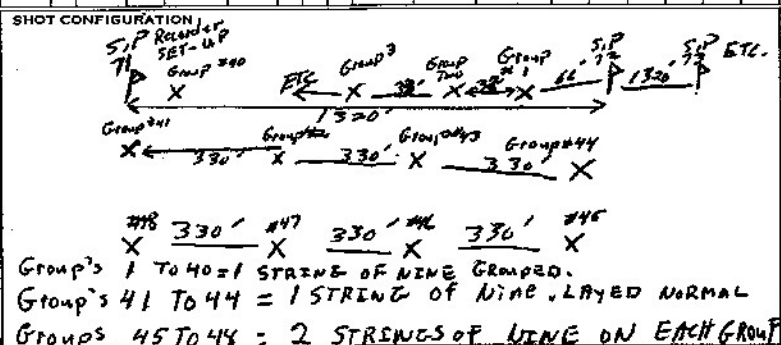 SHOT CONFIGURATION
S.P 71 Recorder SET-UP
Group #40
ETC
Group 3
Group Two
Group # 1
S.P 72
S.P 73 ETC.
33' 66' 1320'
1320'
Group #41 Group Group #43 Group #44
330' 330' 330'
#48 330' #47 330' #46 330' #45
Group's 1 To 40 = 1 STRING OF NINE GROUPED.
Group's 41 To 44 = 1 STRING OF NINE, LAYED NORMAL
Groups 45 To 48 = 2 STRINGS OF NINE ON EACH GROUP